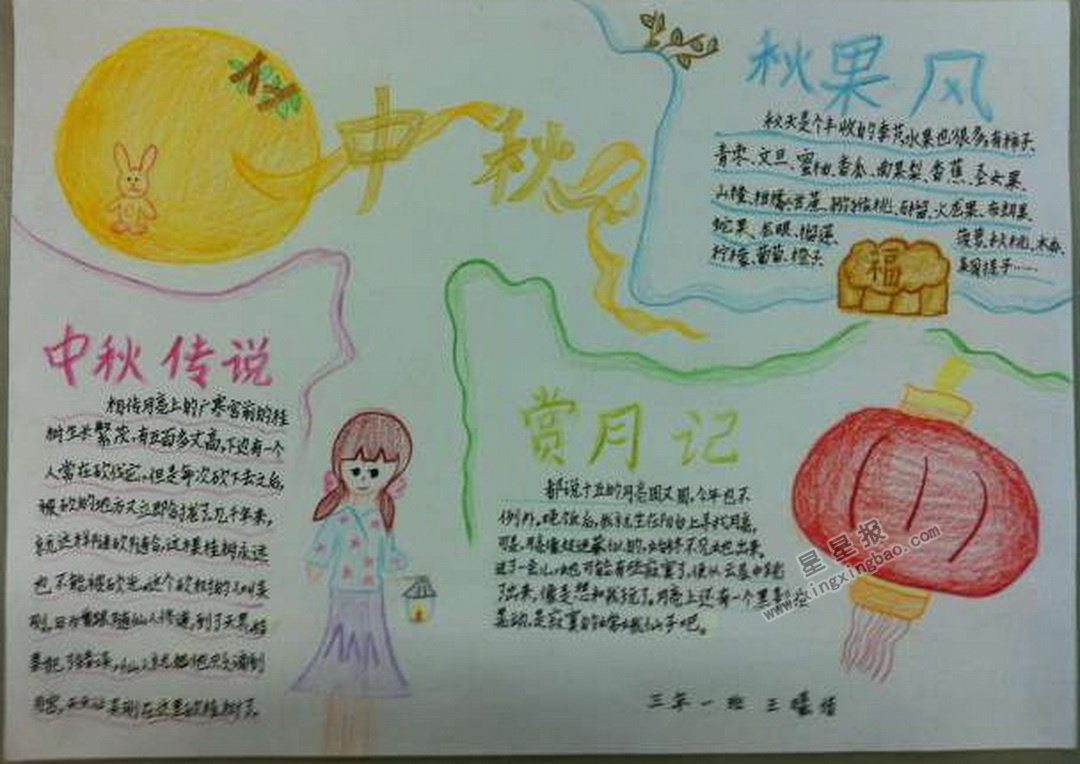 中秋
秋果风
秋天是个丰收的季节,水果也很多,有柿子、
青枣、文旦、蜜柚、香瓜、南果梨、香蕉、圣女果、
山楂、柑橘、甘蔗、猕猴桃、石榴、火龙果、布朗果、
蛇果、龙眼、榴莲、菠萝、秋桃、木瓜、
柠檬、葡萄、橙子、……
福
中秋传说
相传月亮上的广寒宫前的桂
树生长繁茂,有五百多丈高,下边有一个
人常在砍伐它,但是每次砍下去之后,
被砍的地方又立即合拢了。几千年来,
就这样随砍随合,这棵桂树永远
也不能被砍光。这个砍树的人叫吴
刚,曾跟随仙人修道,到了天界,
犯了错误,仙人就把他贬谪到
月宫,
赏月记
都说十五的月亮圆又圆,今年也不
例外。晚饭后,我就坐在阳台上寻找月亮,
可是,月亮像捉迷藏似的,始终不见她出来。
过了一会儿,她可能有些寂寞了,便从云层中
了出来,像是想和我玩了。月亮上还有一个黑
晃动,是寂寞的嫦娥仙子吧。
三年一班 王
星星报
www.xingxingbao.com